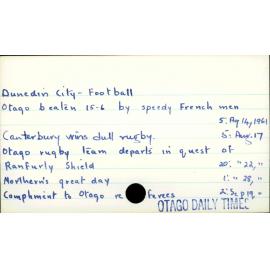 Dunedin City - Football
Otago beaten 15-6 by speedy French men
5. Ag 14, 1961
Canterbury wins dull rugby. 5. Aug. 17
Otago rugby team departs in quest of
Ranfurly Shield 20. " 22, "
Northern's great day 1. " 28, "
Compliment to Otago referees 2. Sep 19, "
OTAGO DAILY TIMES